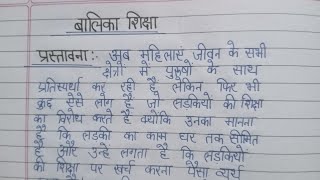 बालिका शिक्षा
प्रस्तावना :- अब महिलाएं जीवन के सभी
क्षेत्रों में पुरुषों के साथ
प्रतिस्पर्धा कर रही है लेकिन फिर भी
कुछ ऐसे लोग हैं जो लडकियों की शिक्षा
का विरोध करते है क्योंकि उनका मानना
है कि लडकी का काम घर तक सीमित
है और उन्हे लगता है कि लडकियों
की शिक्षा पर खर्च करना पैसा व्यर्थ